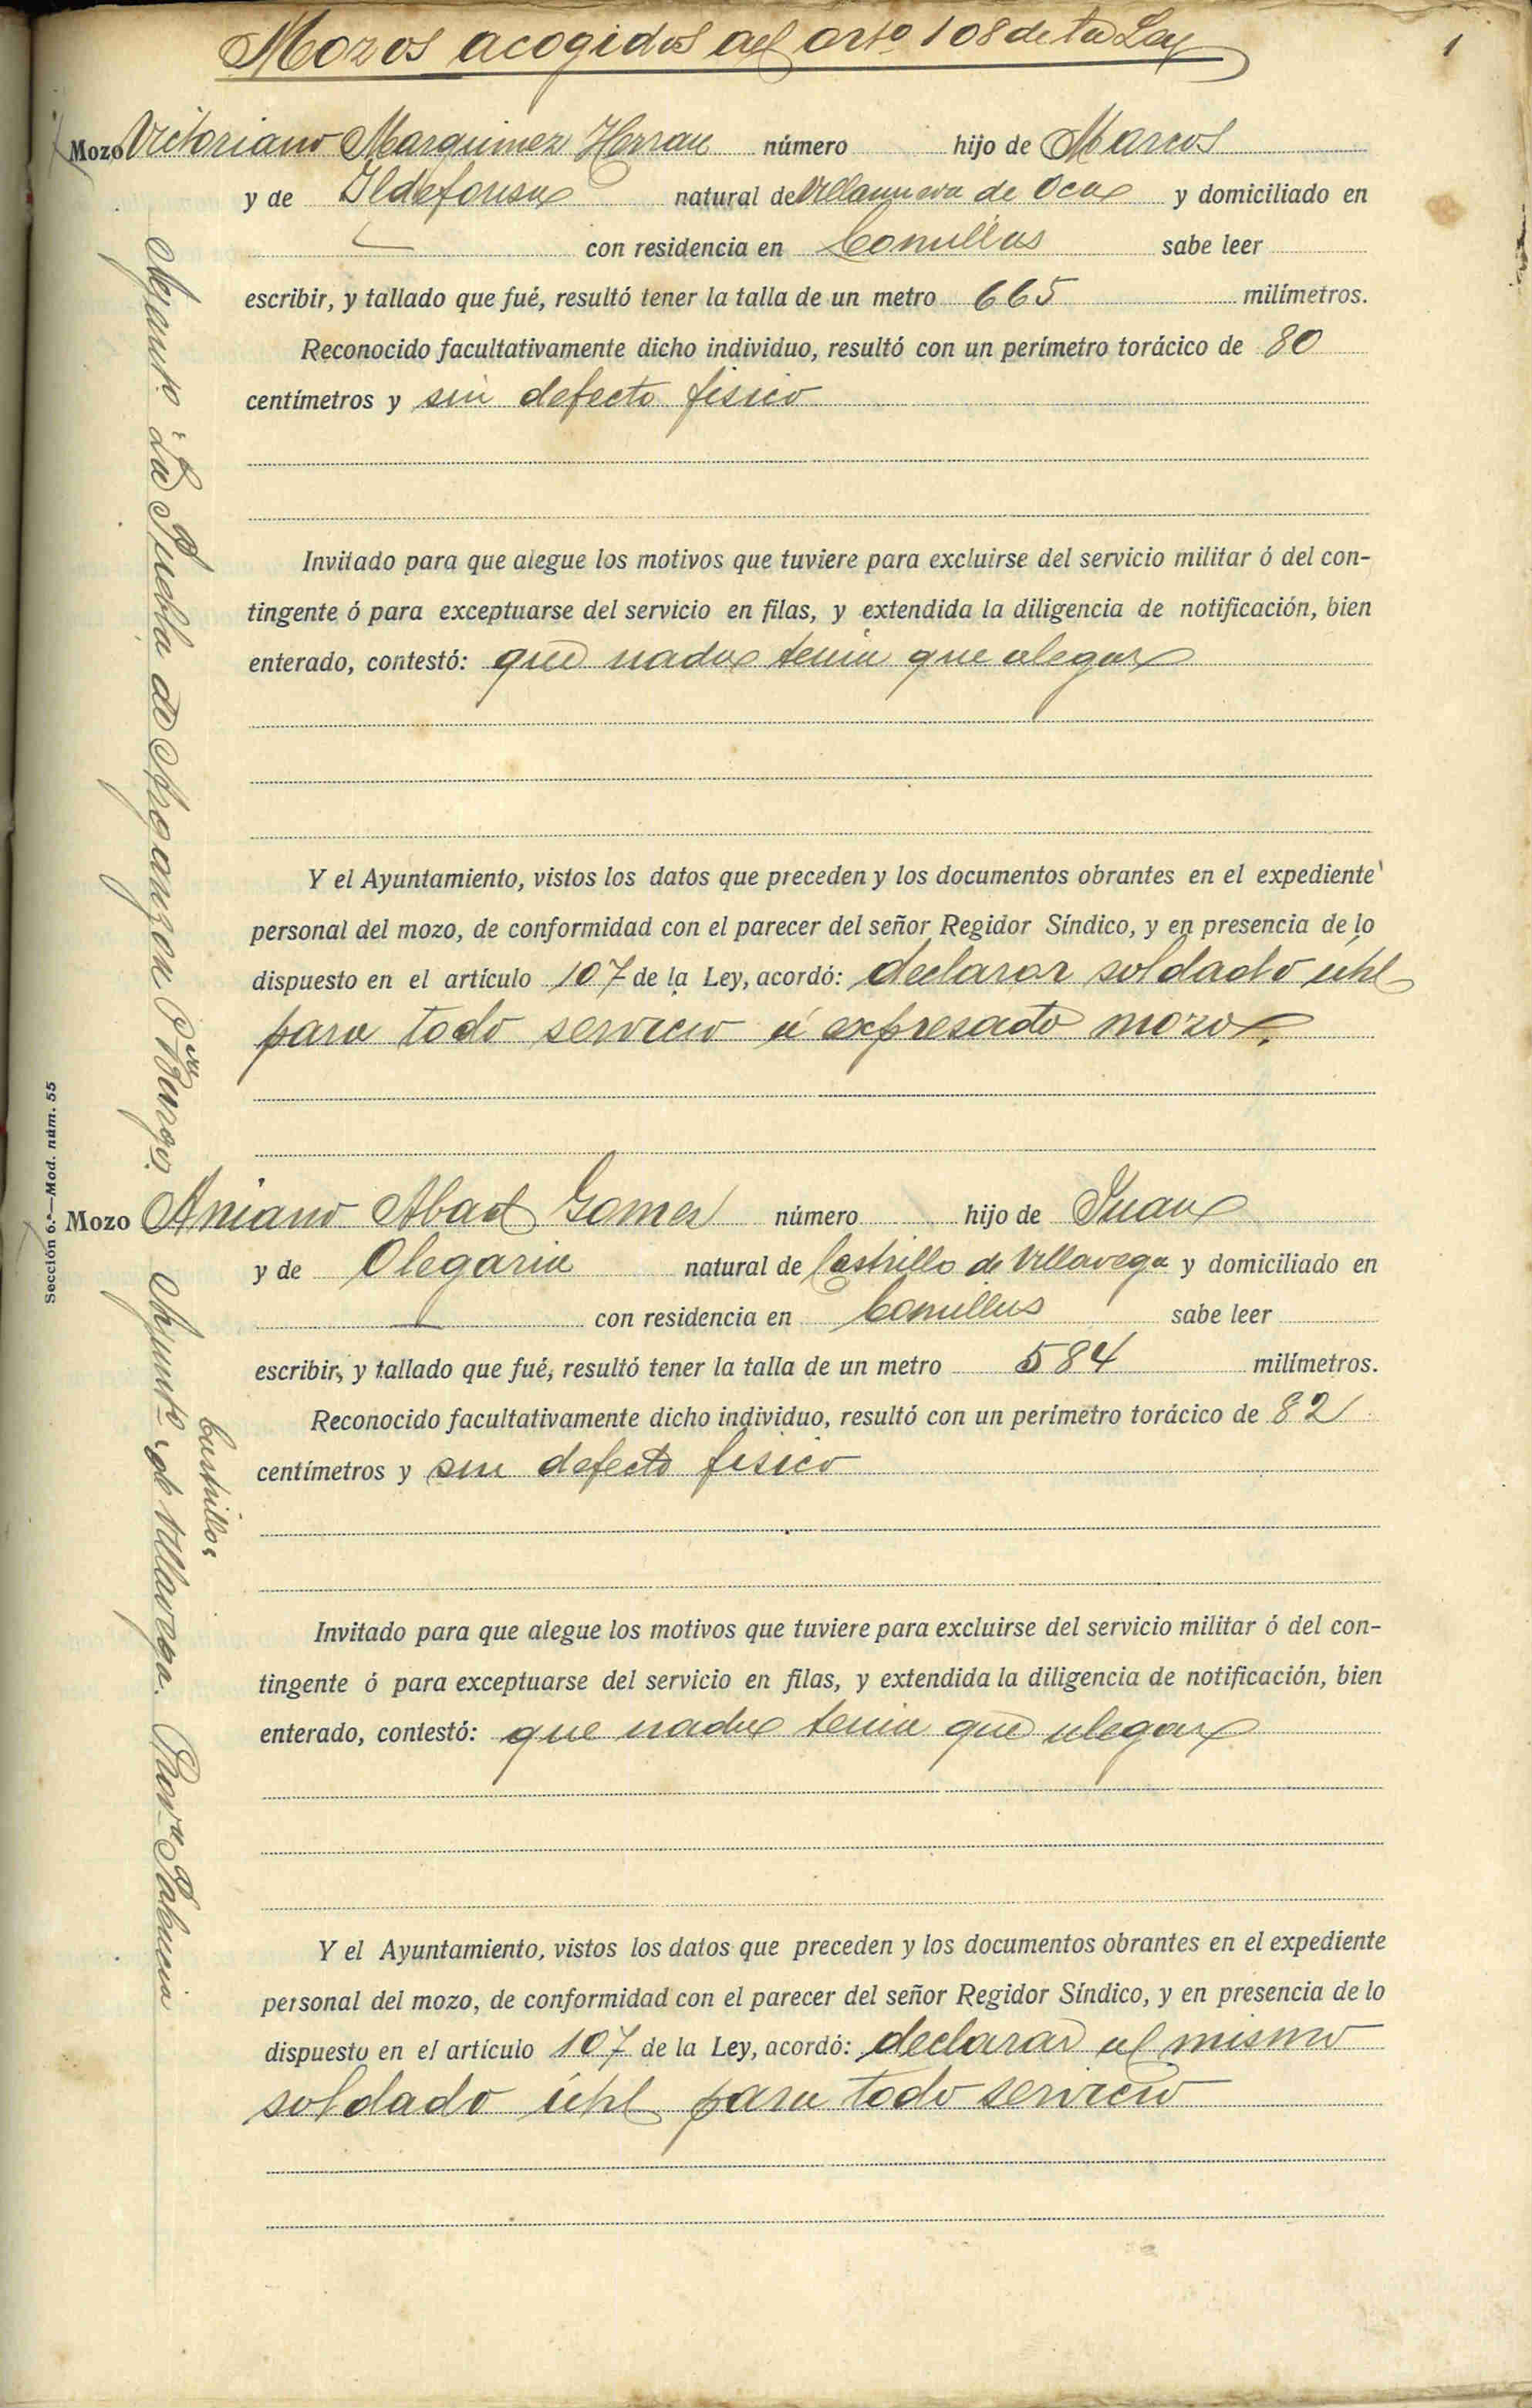 Mozos acogidos al arto 108 de la Ley
1
Mozo Victoriano Marquinez Herran número hijo de Marcos
y de Ildefonsa natural de Villanueva de Oca y domiciliado en
con residencia en Comillas sabe leer
escribir, y tallado que fué, resultó tener la talla de un metro 665 milímetros.
Reconocido facultativamente dicho individuo, resultó con un perímetro torácico de 80
centímetros y sin defecto fisico
Invitado para que alegue los motivos que tuviere para excluirse del servicio militar ó del con-
tingente ó para exceptuarse del servicio en filas, y extendida la diligencia de notificación, bien
enterado, contestó: que nada tenia que alegar
Y el Ayuntamiento, vistos los datos que preceden y los documentos obrantes en el expediente
personal del mozo, de conformidad con el parecer del señor Regidor Síndico, y en presencia de lo
dispuesto en el artículo 107 de la Ley, acordó: declarar soldado útil
para todo servicio á expresado mozo.
Ayunto La Puebla de Arganzon Pva Burgos.
Sección 6.ª—Mod. núm. 55
Mozo Aniano Abad Gomez número hijo de Juan
y de Olegaria natural de Castrillo de Villavega y domiciliado en
con residencia en Comillas sabe leer
escribir, y tallado que fué, resultó tener la talla de un metro 584 milímetros.
Reconocido facultativamente dicho individuo, resultó con un perímetro torácico de 82
centímetros y sin defecto fisico
Invitado para que alegue los motivos que tuviere para excluirse del servicio militar ó del con-
tingente ó para exceptuarse del servicio en filas, y extendida la diligencia de notificación, bien
enterado, contestó: que nada tenia que alegar
Y el Ayuntamiento, vistos los datos que preceden y los documentos obrantes en el expediente
personal del mozo, de conformidad con el parecer del señor Regidor Síndico, y en presencia de lo
dispuesto en el artículo 107 de la Ley, acordó: declarar al mismo
soldado útil para todo servicio
Castrillo
Ayunto de Villavega. Prova Palencia